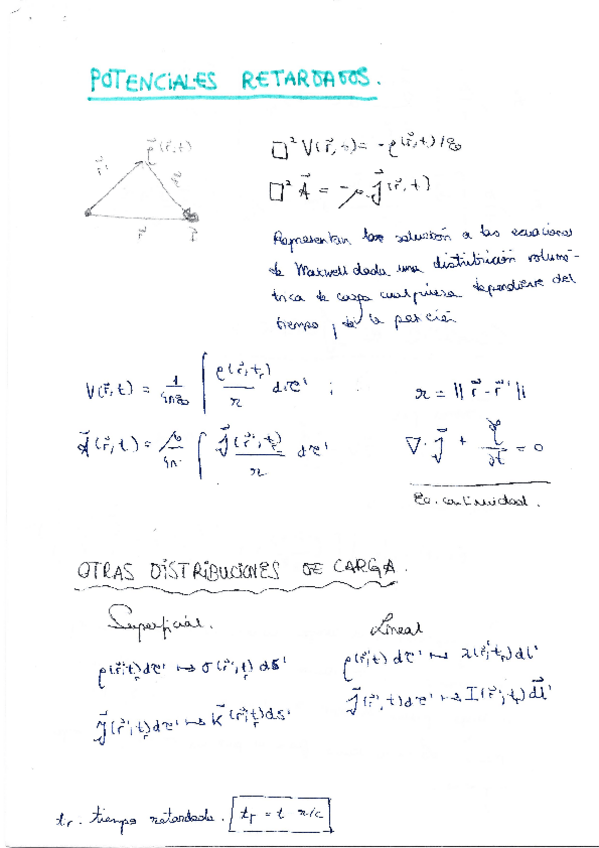 POTENCIALES RETARDADOS.
ρ(r⃗',t)
r⃗'
r⃗
P
□² V(r⃗,t) = -ρ(r⃗,t)/ε₀
□² A⃗ = -μ₀ j⃗(r⃗,t)
Representan la solución a las ecuaciones
de Maxwell dada una distribución volumé-
trica de carga cualquiera dependiente del
tiempo y de la posición
V(r⃗,t) = 1/4πε₀ ∫ ρ(r⃗',tᵣ)/r dτ' ; r = ||r⃗ - r⃗'||
A⃗(r⃗,t) = μ₀/4π ∫ j⃗(r⃗',tᵣ)/r dτ' ∇·j⃗ + ∂ρ/∂t = 0
Ec. continuidad.
OTRAS DISTRIBUCIONES DE CARGA.
Superficial. Lineal
ρ(r⃗',tᵣ)dτ' ↦ σ(r⃗',tᵣ)ds' ρ(r⃗',t)dτ' ↦ λ(r⃗',tᵣ)dl'
j⃗(r⃗',tᵣ)dτ' ↦ K⃗(r⃗',tᵣ)ds' j⃗(r⃗',t)dτ' ↦ I(r⃗',tᵣ)dl⃗'
tᵣ. tiempo retardado. tᵣ = t r/c